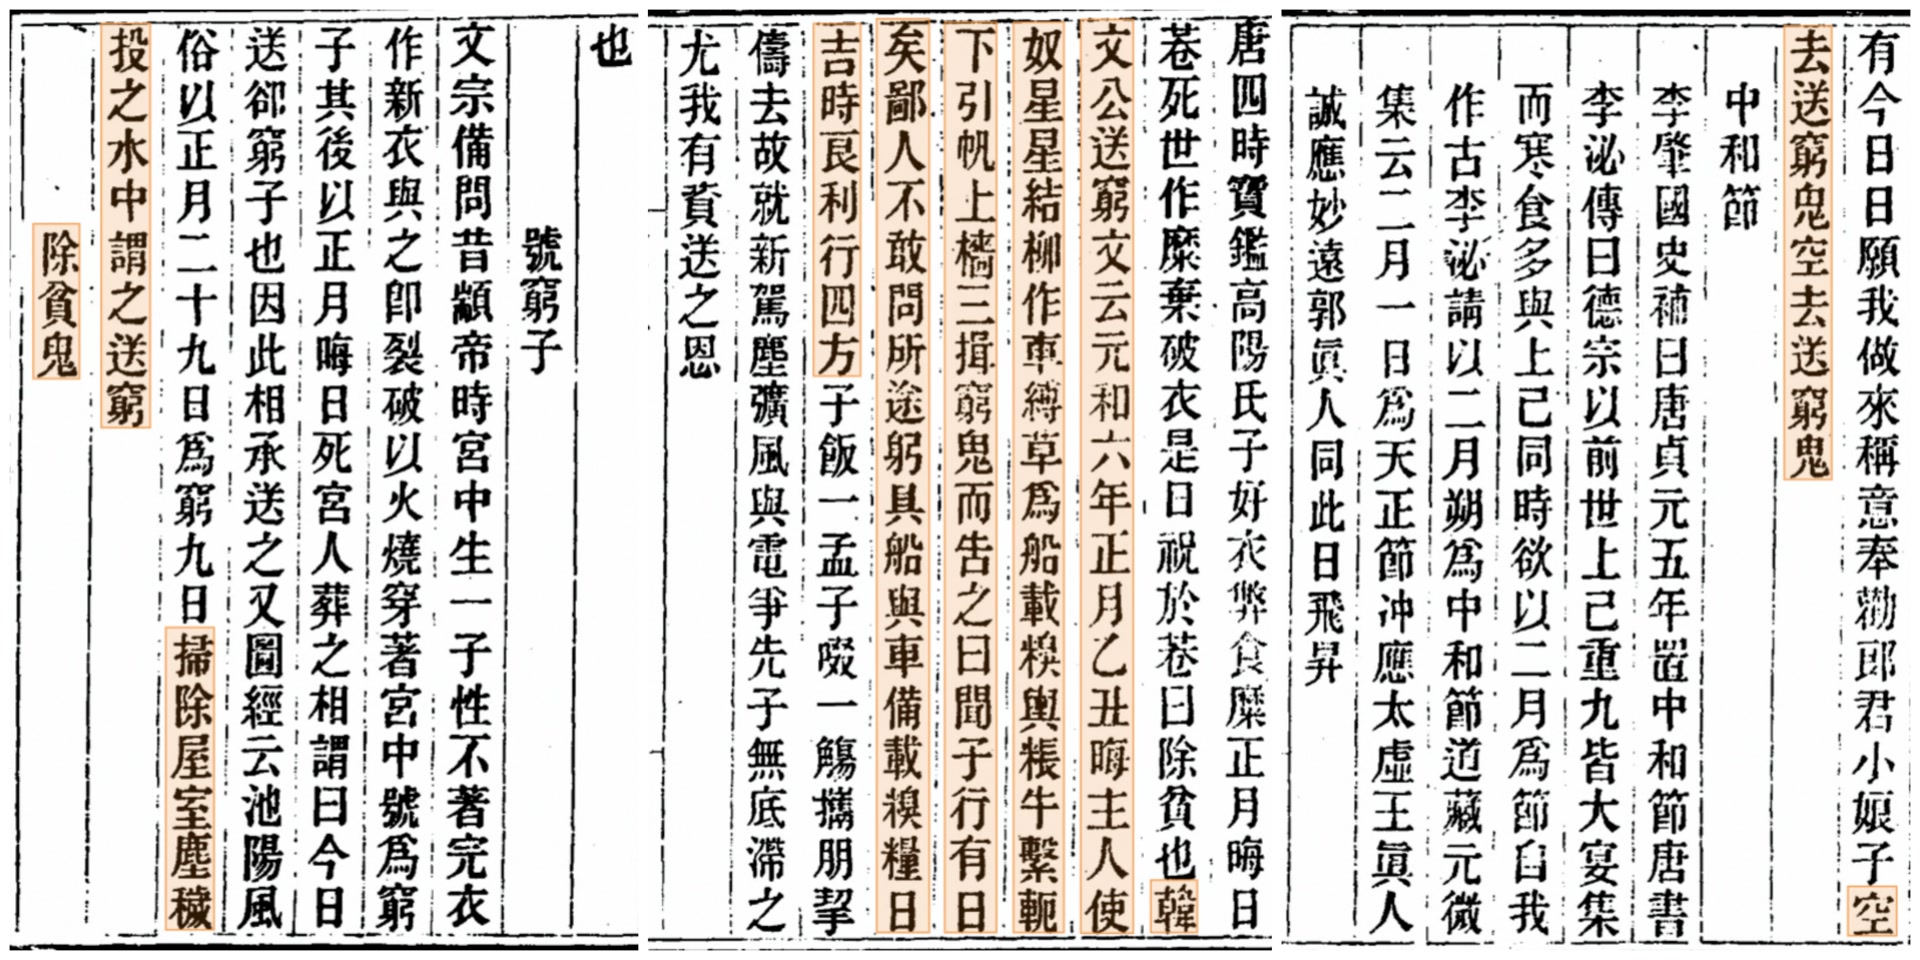 也
號窮子
文宗備問昔顓帝時宮中生一子性不著完衣
作新衣與之卽裂破以火燒穿著宮中號爲窮
子其後以正月晦日死宮人葬之相謂曰今日
送卻窮子也因此相承送之又圖經云池陽風
俗以正月二十九日爲窮九日掃除屋室塵穢
投之水中謂之送窮
除貧鬼
唐四時寶鑑高陽氏子好衣弊食糜正月晦日
巷死世作糜棄破衣是日祝於巷曰除貧也韓
文公送窮文云元和六年正月乙丑晦主人使
奴星星結柳作車縛草爲船載糗輿粻牛繫軛
下引帆上檣三揖窮鬼而告之曰聞子行有日
矣鄙人不敢問所途躬具船與車備載糗糧日
吉時良利行四方子飯一孟子啜一觴攜朋挈
儔去故就新駕塵彍風與電爭先子無底滯之
尤我有資送之恩
有今日日願我做來稱意奉勸郎君小娘子空
去送窮鬼空去送窮鬼
中和節
李肇國史補曰唐貞元五年置中和節唐書
李泌傳曰德宗以前世上巳重九皆大宴集
而寒食多與上巳同時欲以二月爲節自我
作古李泌請以二月朔爲中和節道藏元微
集云二月一日爲天正節冲應太虛王眞人
誠應妙遠郭眞人同此日飛昇